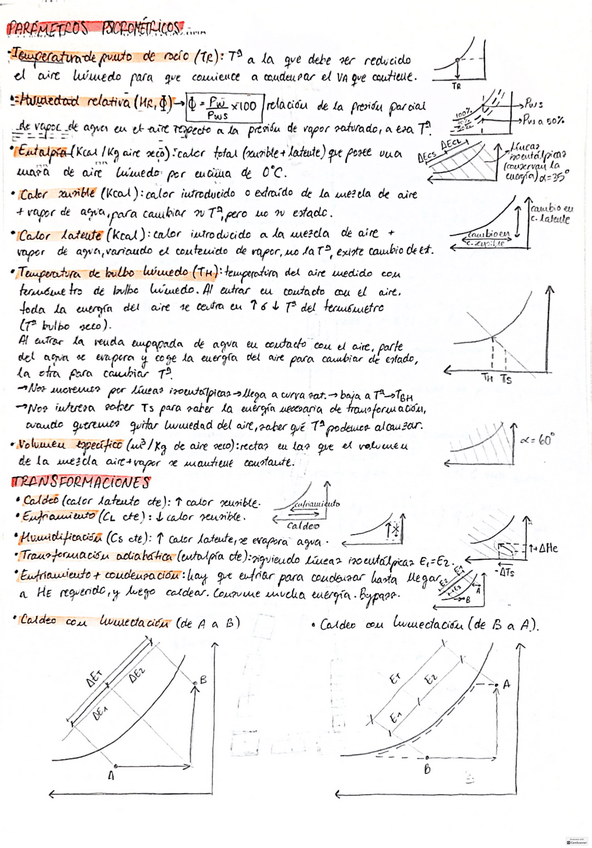 PARÁMETROS PSICROMÉTRICOS
• Temperatura de punto de rocío (TR): Tª a la que debe ser reducido
el aire húmedo para que comience a condensar el VA que contiene.
TR
• Humedad relativa (HR, Φ) → Φ = Pw/Pws x100 relación de la presión parcial
de vapor de agua en el aire respecto a la presión de vapor saturado, a esa Tª.
100%
Pws
Pw a 50%
• Entalpía (Kcal/Kg aire seco): calor total (sensible + latente) que posee una
masa de aire húmedo por encima de 0°C.
ΔECS ΔECL
líneas
isoentálpicas
(conservan la
energía) α=35°
• Calor sensible (Kcal): calor introducido o extraído de la mezcla de aire
+ vapor de agua, para cambiar su Tª, pero no su estado.
cambio en
c. latente
cambio en
c. sensible
• Calor latente (Kcal): calor introducido a la mezcla de aire +
vapor de agua, variando el contenido de vapor, no la Tª, existe cambio de est.
• Temperatura de bulbo húmedo (TH): temperatura del aire medido con
termómetro de bulbo húmedo. Al entrar en contacto con el aire.
toda la energía del aire se centra en ↑ ó ↓ Tª del termómetro
(Tª bulbo seco).
Al entrar la venda empapada de agua en contacto con el aire, parte
del agua se evapora y coge la energía del aire para cambiar de estado,
la otra para cambiar Tª.
TH TS
→ Nos movemos por líneas isoentálpicas → llega a curva sat. → baja a Tª → TBH
→ Nos interesa saber Ts para saber la energía necesaria de transformación,
cuando queremos quitar humedad del aire, saber qué Tª podemos alcanzar.
• Volumen específico (m³/Kg de aire seco): rectas en las que el volumen
de la mezcla aire + vapor se mantiene constante.
α=60°
TRANSFORMACIONES
• Caldeo (calor latente cte): ↑ calor sensible.
• Enfriamiento (CL cte): ↓ calor sensible.
enfriamiento
caldeo
• Humidificación (Cs cte): ↑ calor latente, se evapora agua.
• Transformación adiabática (entalpía cte): siguiendo líneas isoentálpicas E1=E2.
+ΔHe
-ΔTs
• Enfriamiento + condensación: hay que enfriar para condensar hasta llegar
a HE requerido, y luego caldear. Consume mucha energía. Bypass.
A
B
• Caldeo con humectación (de A a B)
ΔET
ΔE1
ΔE2
A
B
• Caldeo con humectación (de B a A).
ET
E1
E2
A
B